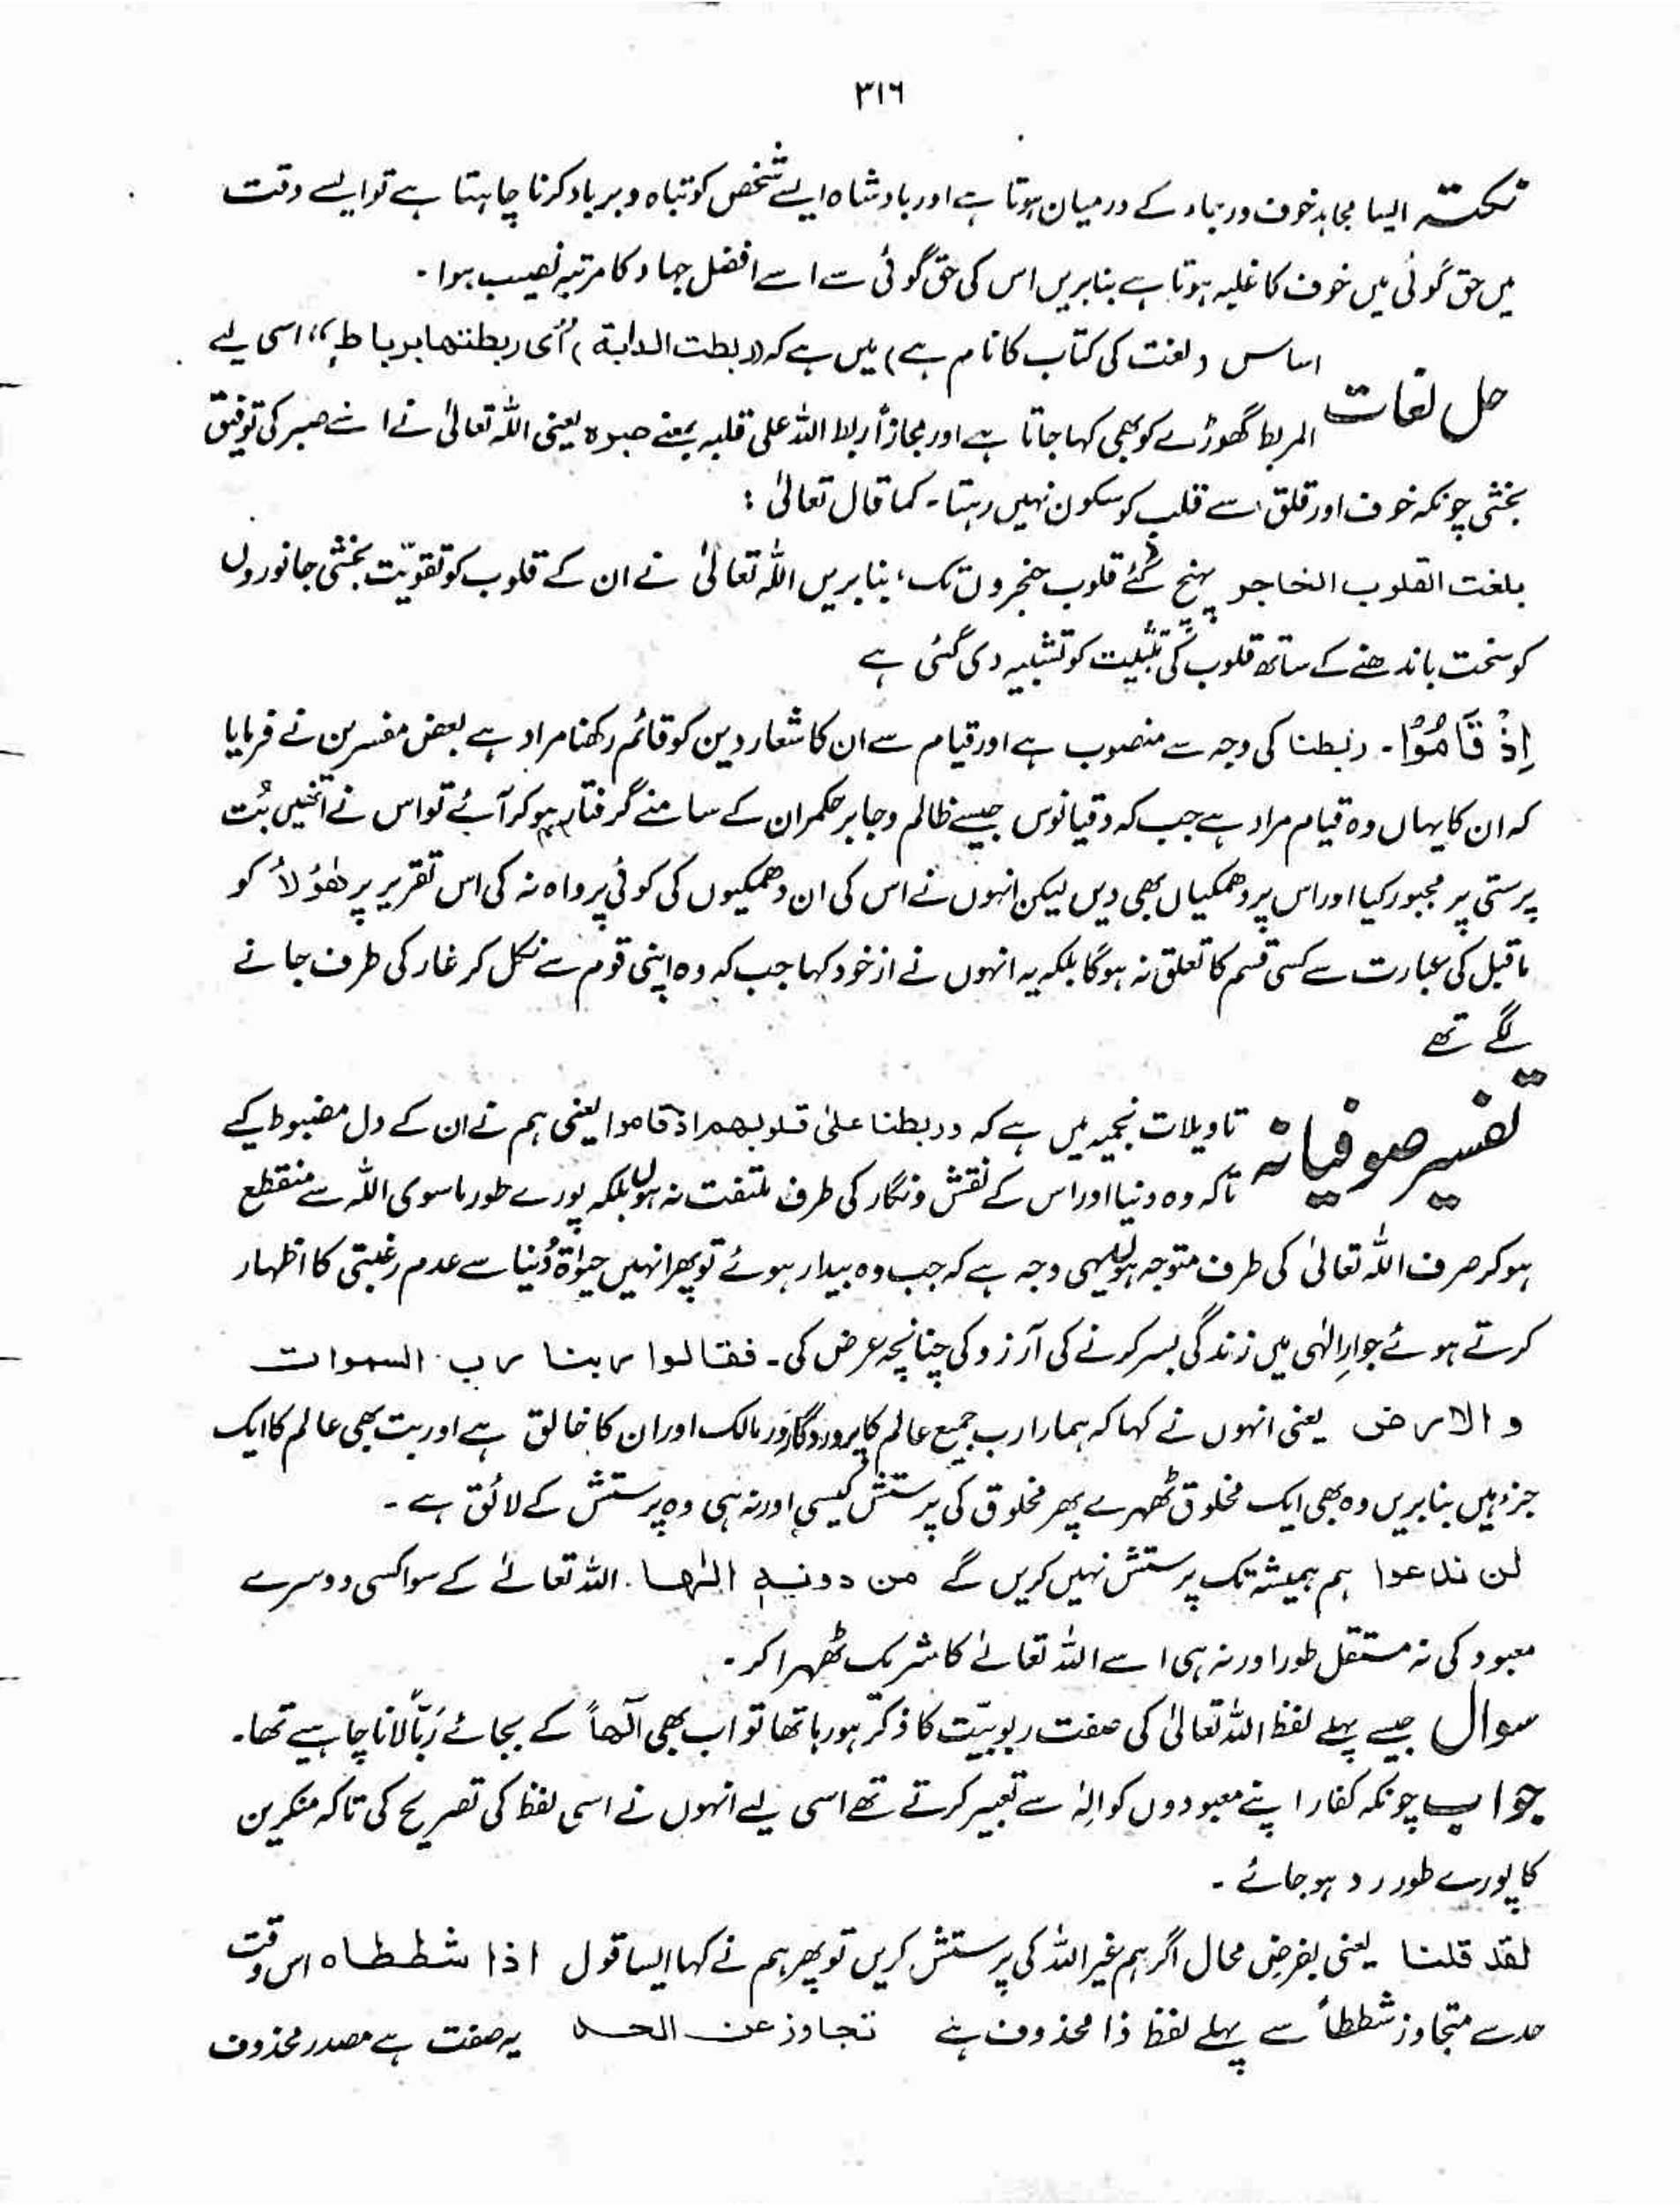 ۳۱۶
نکتہ ایسا مجاہد خوف و رجاء کے درمیان ہوتا ہے اور بادشاہ ایسے شخص کو تباہ و برباد کرنا چاہتا ہے تو ایسے وقت
میں حق گوئی میں خوف کا غلبہ ہوتا ہے بنابریں اس کی حق گوئی سے اسے افضل جہاد کا مرتبہ نصیب ہوا ۔
حل لغات اساس (لغت کی کتاب کا نام ہے) میں ہے کہ ((ربطت الدابة) اُی ربطتھا برباط،، اسی لیے
المربط گھوڑے کو بھی کہا جاتا ہے اور مجازاً ربط اللہ علی قلبہ بمعنے صبرہ یعنی اللہ تعالیٰ نے اسے صبر کی توفیق
بخشی چونکہ خوف اور قلق سے قلب کو سکون نہیں رہتا ۔ کما قال تعالیٰ :
بلغت القلوب الخاجر پہنچ گئے قلوب حنجروں تک، بنابریں اللہ تعالیٰ نے ان کے قلوب کو تقویّت بخشی جانوروں
کو سخت باندھنے کے ساتھ قلوب کی تثبیت کو تشبیہ دی گئی ہے
اِذْ قَامُوْا ۔ ربطنا کی وجہ سے منصوب ہے اور قیام سے ان کا شعار دین کو قائم رکھنا مراد ہے بعض مفسرین نے فرمایا
کہ ان کا یہاں وہ قیام مراد ہے جب کہ دقیانوس جیسے ظالم و جابر حکمران کے سامنے گرفتار ہو کر آئے تو اس نے انھیں بُت
پرستی پر مجبور کیا اور اس پر دھمکیاں بھی دیں لیکن انہوں نے اس کی ان دھمکیوں کی کوئی پرواہ نہ کی اس تقریر پر ھٰؤلاُ کو
ماقبل کی عبارت سے کسی قسم کا تعلق نہ ہوگا بلکہ یہ انہوں نے از خود کہا جب کہ وہ اپنی قوم سے نکل کر غار کی طرف جانے
لگے تھے
تفسیر صوفیانہ تاویلات نجمیہ میں ہے کہ وربطنا علیٰ قلوبھم اذ قاموا یعنی ہم نے ان کے دل مضبوط کیے
تاکہ وہ دنیا اور اس کے نقش و نگار کی طرف ملتفت نہ ہوں بلکہ پورے طور ماسوی اللہ سے منقطع
ہو کر صرف اللہ تعالیٰ کی طرف متوجہ ہوں یہی وجہ ہے کہ جب وہ بیدار ہوئے تو پھر انہیں حیوٰۃ دُنیا سے عدم رغبتی کا اظہار
کرتے ہوئے جوارِ الٰہی میں زندگی بسر کرنے کی آرزو کی چنانچہ عرض کی ۔ فقالوا ربنا رب السموات
والارض یعنی انہوں نے کہا کہ ہمارا رب جمیع عالم کا پروردگار اور مالک اور ان کا خالق ہے اور بت بھی عالم کا ایک
جزء ہیں بنابریں وہ بھی ایک مخلوق ٹھہرے پھر مخلوق کی پرستش کیسی اور نہ ہی وہ پرستش کے لائق ہے ۔
لن ندعوا ہم ہمیشہ تک پرستش نہیں کریں گے من دونہٖ الٰھا . اللہ تعالےٰ کے سوا کسی دوسرے
معبود کی نہ مستقل طور اور نہ ہی اسے اللہ تعالےٰ کا شریک ٹھہرا کر ۔
سوال جیسے پہلے لفظ اللہ تعالیٰ کی صفت ربوبیّت کا ذکر ہو رہا تھا تو اب بھی آلھاً کے بجائے رَبّاً لانا چاہیے تھا ۔
جواب چونکہ کفار اپنے معبودوں کو الٰہ سے تعبیر کرتے تھے اسی لیے انہوں نے اسی لفظ کی تصریح کی تاکہ منکرین
کا پورے طور رد ہو جائے ۔
لقد قلنا یعنی بفرض محال اگر ہم غیر اللہ کی پرستش کریں تو پھر ہم نے کہا ایسا قول اذا شططا ہ اس وقت
حد سے متجاوز شططاً سے پہلے لفظ ذا محذوف ہے تجاوز عن الحد یہ صفت ہے مصدر محذوف